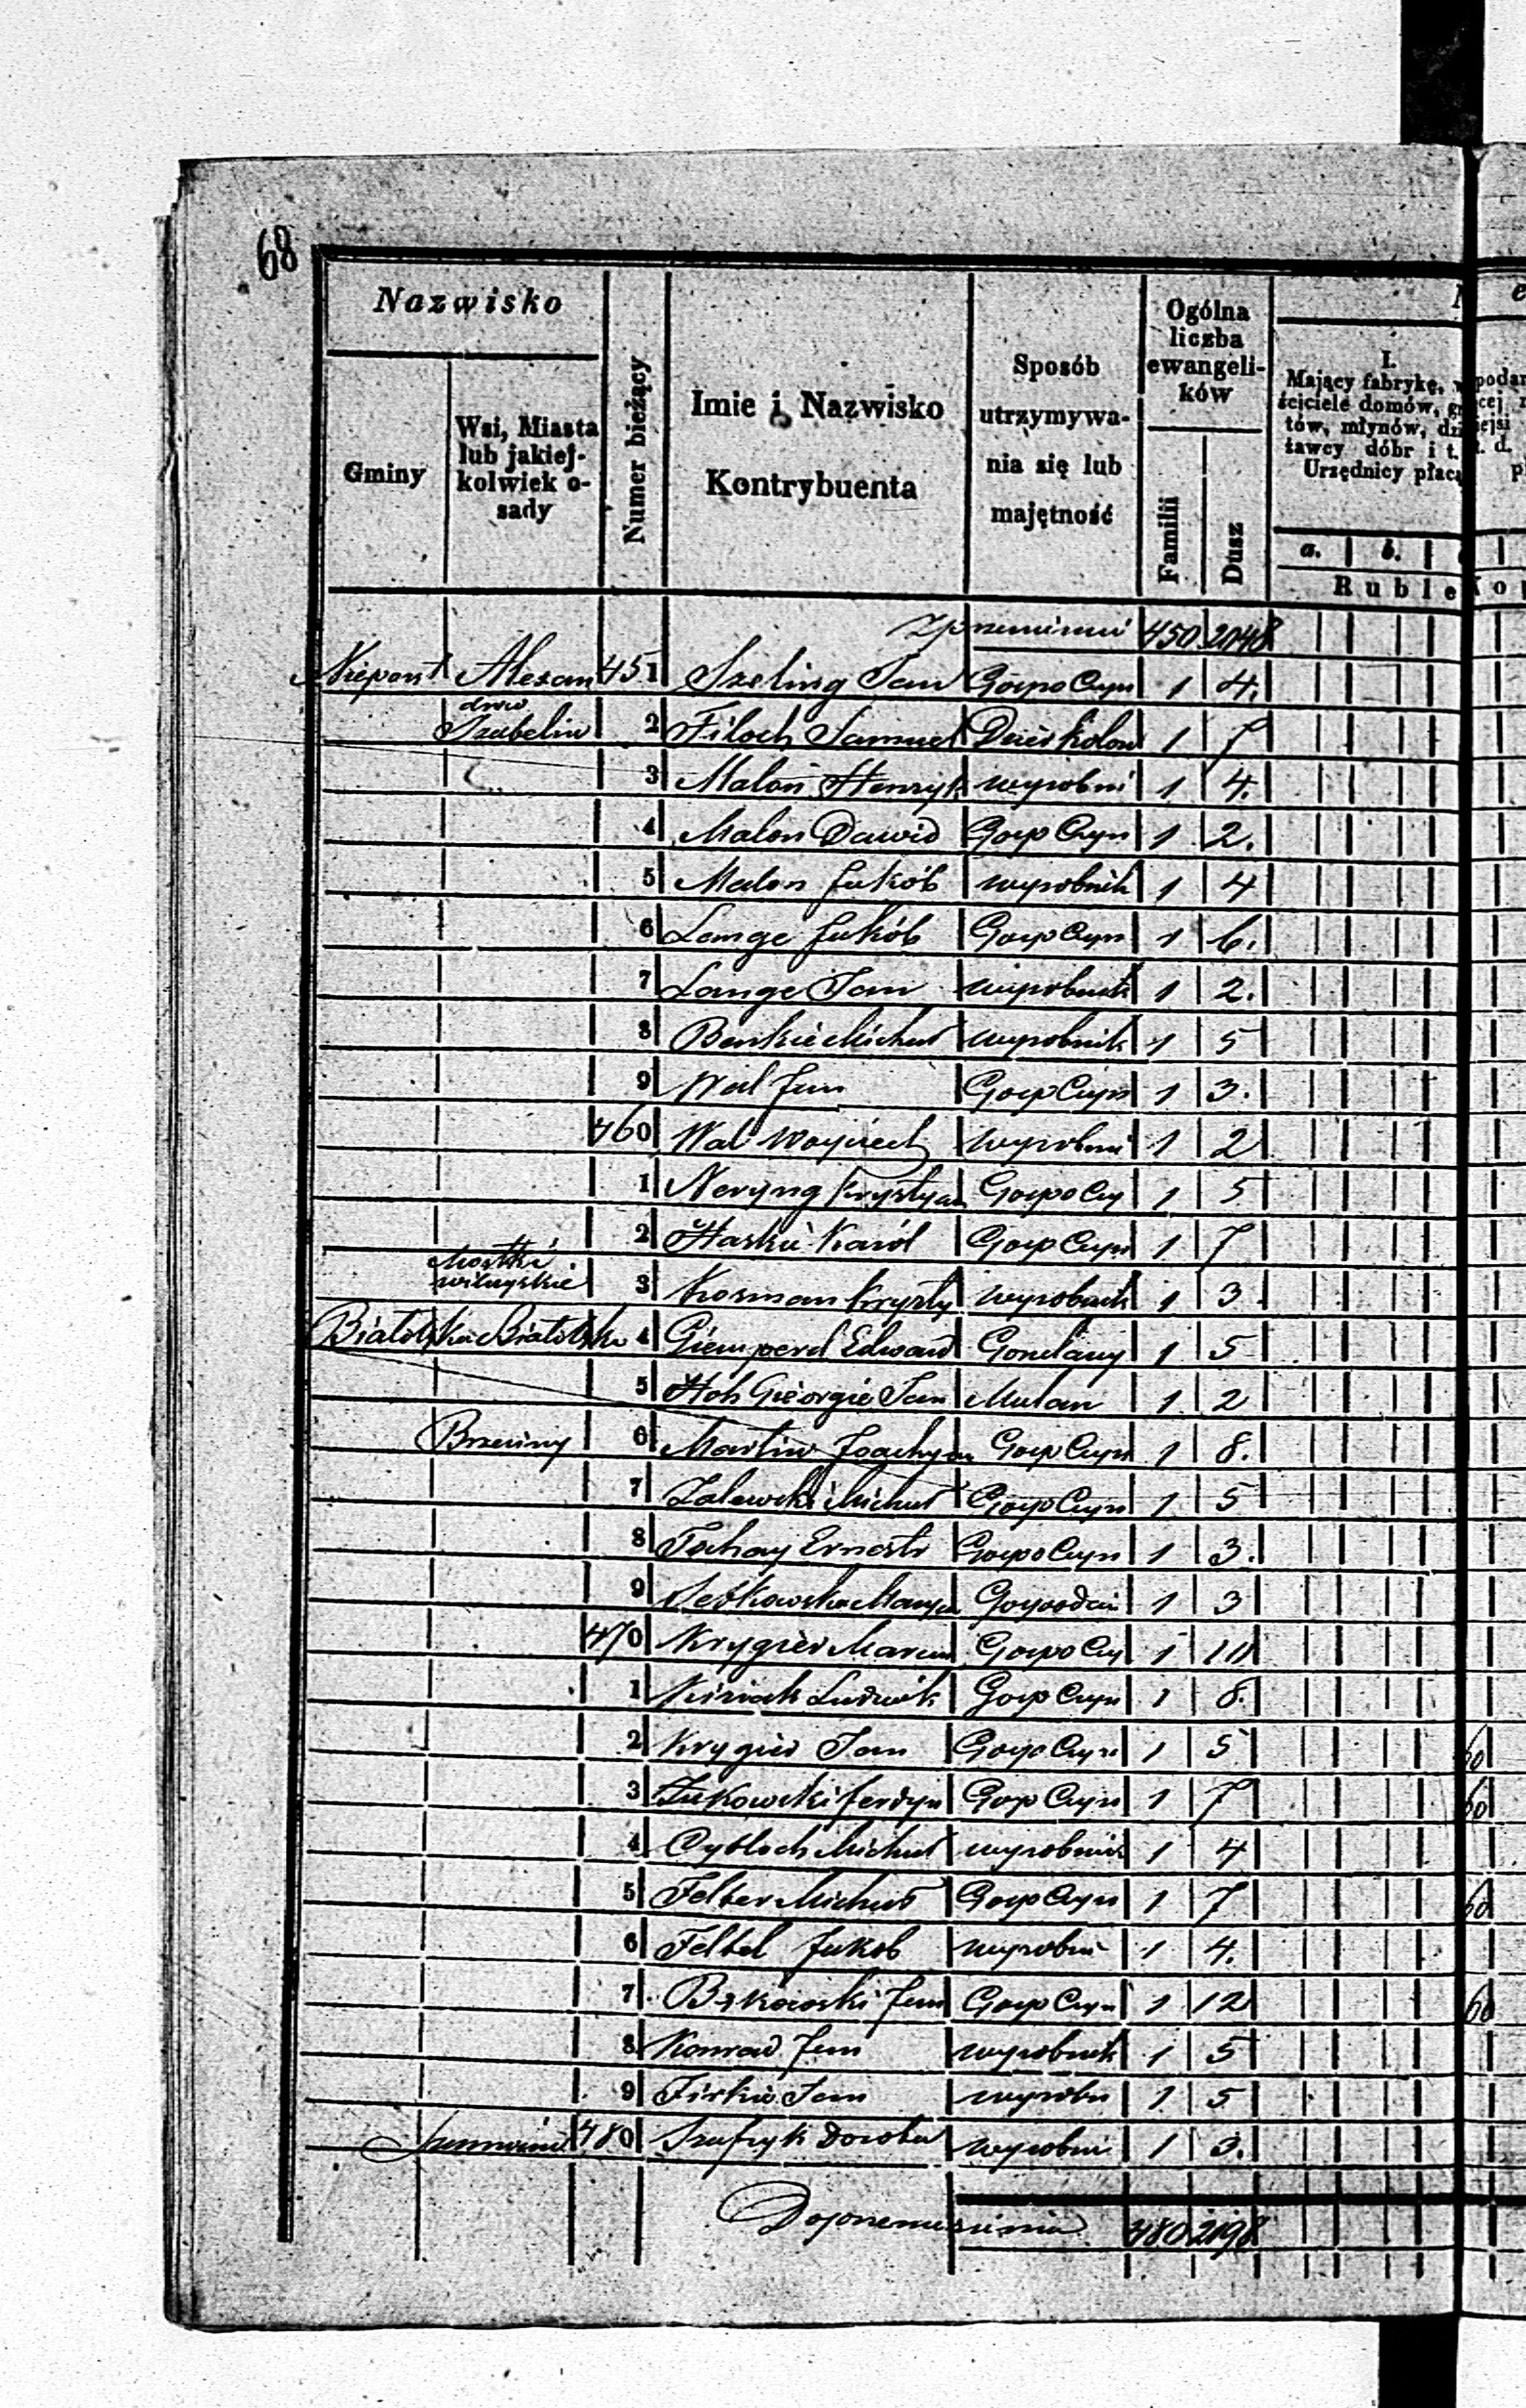 68
Nazwisko
Gminy
Wsi, Miasta
lub jakiej-
kolwiek o-
sady
Numer bieżący
Imie i Nazwisko
Kontrybuenta
Sposób
utrzymywa-
nia się lub
majętność
Ogólna
liczba
ewangeli-
ków
Familii
Dusz
I.
Mający fabrykę,
ściciele domów,
tów, młynów,
żawcy dóbr i t.
Urzędnicy
a. b.
Ruble
Z przeniesienia 450 2048
Niepont Alexan 451 Szeling Jan GospoCzyn 1 4.
drow
Izabelin 2 Filoch Samuel Dzierkolon 1 7
3 Malon Henryk wyrobni 1 4.
4 Malon Dawid Gosp Czyn 1 2.
5 Malon Jakób wyrobnik 1 4
6 Lange Jakób Gosp Czyn 1 6.
7 Lange Jan wyrobnik 1 2.
8 Benkie Michał wyrobnik 1 5
9 Wal Jan Gosp Czyn 1 3.
460 Wal Wojciech wyrobni 1 2
1 Neryng Krystyan Gospo Czy 1 5
2 Haskie Karól Gosp Czyn 1 7
Mostki
wilczyskie 3 Kosman Krysty wyrobnik 1 3.
Białołęka Białołęka 4 Giemperd Edward Gorzelany 1 5
5 Hoh Gieorgie Jan Mularz 1 2
Brzeziny 6 Martin Joachym Gosp Czyn 1 8.
7 Zalewski Michał Gosp Czyn 1 5
8 Tochay Ernest Gospo Czyn 1 3.
9 Gospodni 1 3
470 Krygier Marcin Gospo Czy 1 10
1 Kiniak Ludwik Gosp Czyn 1 8.
2 Krygier Jan Gospo Czyn 1 5
3 Żukowski Ferdyn Gosp Czyn 1 7
4 Cybloch Michał wyrobnik 1 4
5 Felber Michał Gosp Czyn 1 7
6 Felbel Jakob wyrobni 1 4.
7 Bąkowski Jan Gosp Czyn 1 12
8 Konrad Jan wyrobnik 1 5
9 Firkie Jan wyrobn 1 5
480 Szafryk Dorota wyrobni 1 3.
Do przeniesienia 480 2198